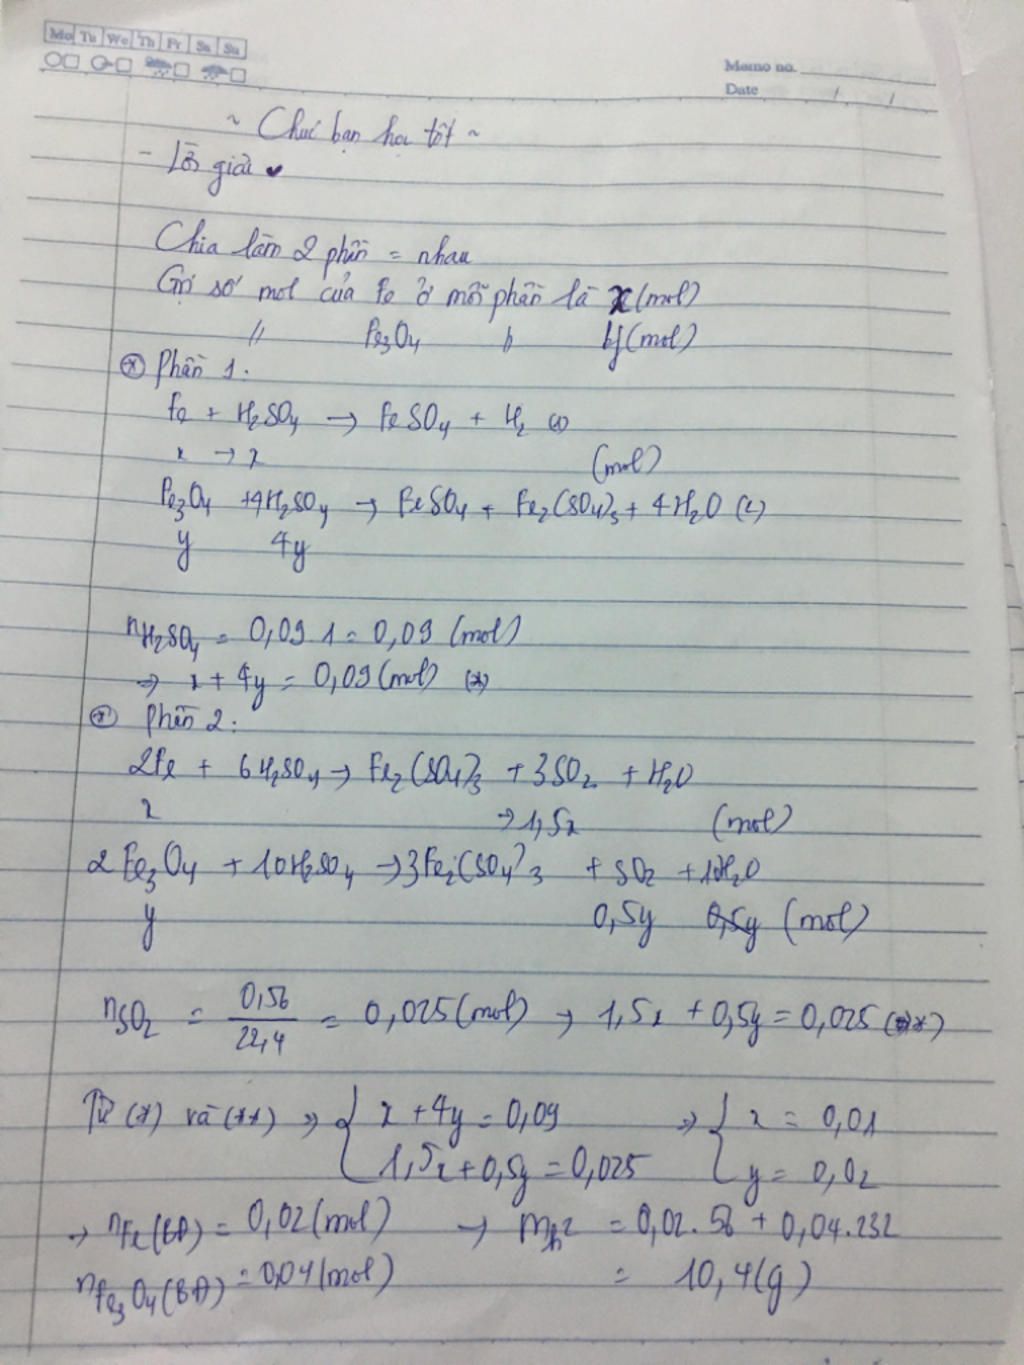 Mo Tu We Th Fr Sa Su
Memo no.
Date / /
~ Chúc bạn học tốt ~
- Lời giải
Chia làm 2 phần = nhau
Gọi số mol của Fe ở mỗi phần là x (mol)
// Fe₃O₄ // y (mol)
(*) Phần 1:
Fe + H₂SO₄ → FeSO₄ + H₂ (1)
x → x (mol)
Fe₃O₄ + 4H₂SO₄ → FeSO₄ + Fe₂(SO₄)₃ + 4H₂O (2)
y 4y
nH₂SO₄ = 0,09.1 = 0,09 (mol)
→ x + 4y = 0,09 (mol) (*)
(*) Phần 2:
2Fe + 6H₂SO₄ → Fe₂(SO₄)₃ + 3SO₂ + H₂O
x → 1,5x (mol)
2Fe₃O₄ + 10H₂SO₄ → 3Fe₂(SO₄)₃ + SO₂ + 10H₂O
y 0,5y 0,5y (mol)
nSO₂ = 0,56/22,4 = 0,025 (mol) → 1,5x + 0,5y = 0,025 (**)
Từ (*) và (**) → { x + 4y = 0,09 → { x = 0,01
1,5x + 0,5y = 0,025 y = 0,02
→ nFe(BĐ) = 0,02 (mol) → mhh = 0,02.56 + 0,04.232
nFe₃O₄(BĐ) = 0,04 (mol) = 10,4 (g)